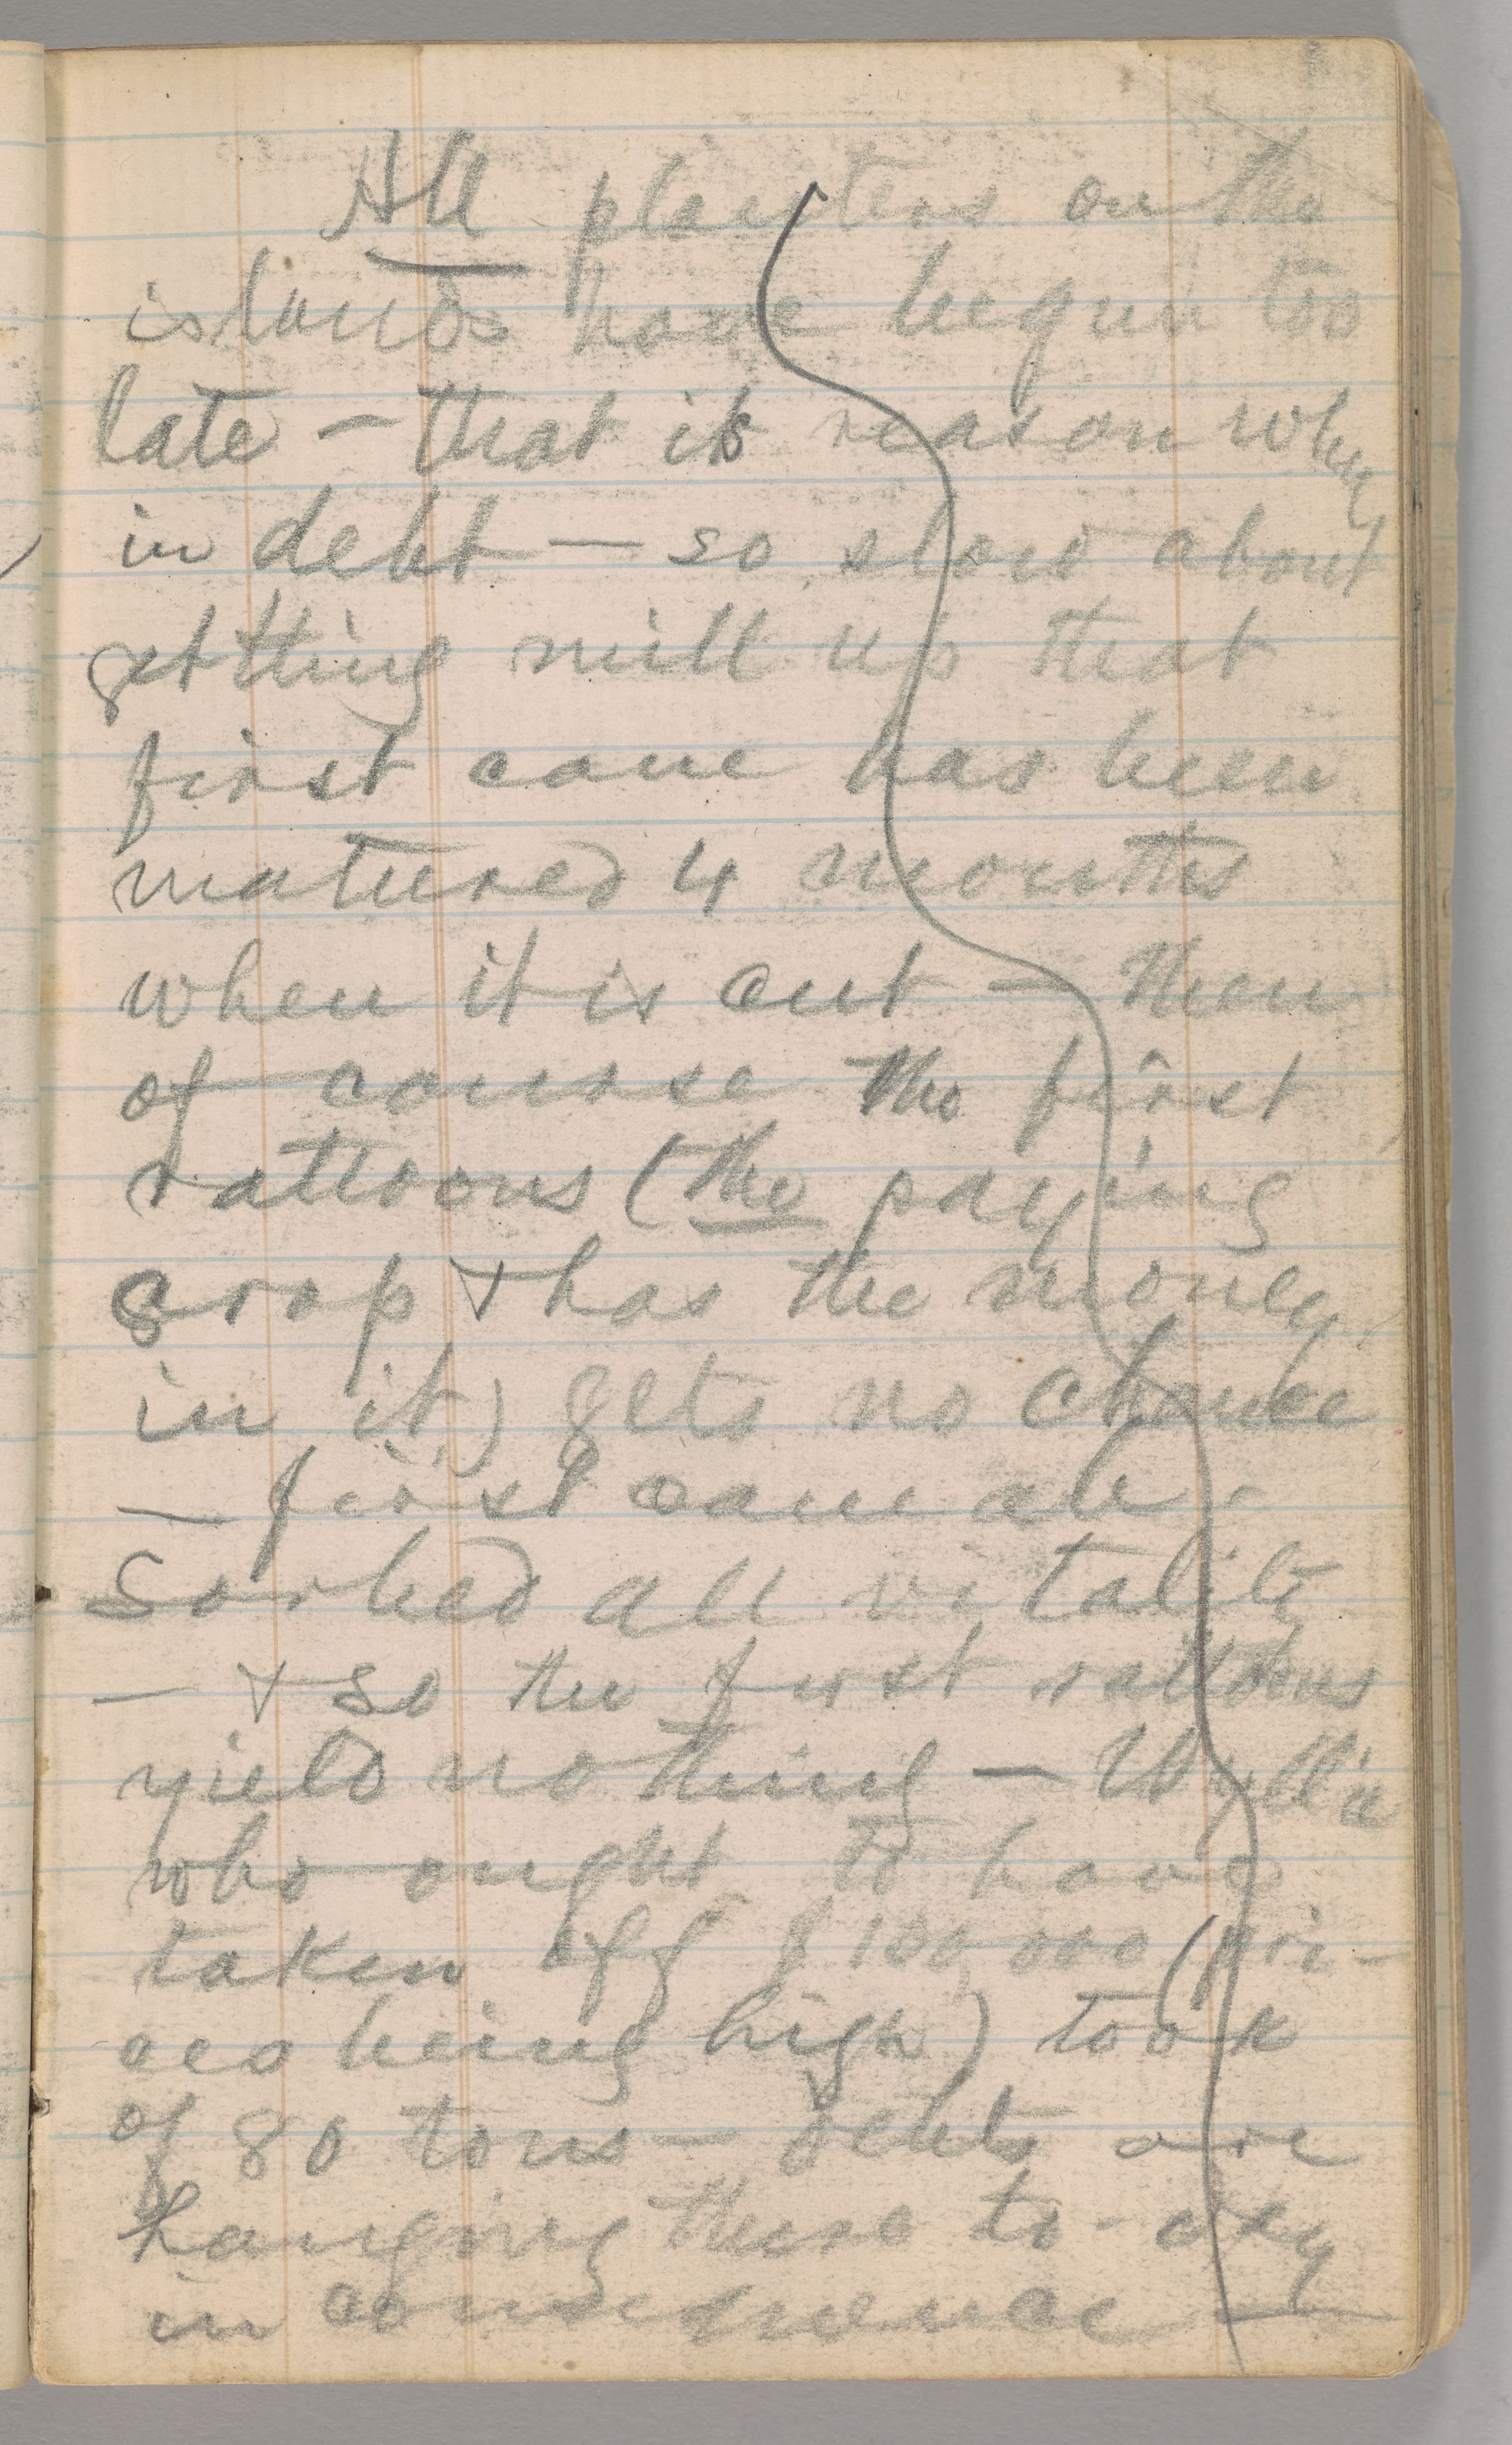 All planters on the
islands have begun too
late – that is reason why
in debt — so slow about
getting mill up that
first cane has been
matured 4 months
when it is cut – then
of course the first
rattoons (the paying
crop & has the money
in it) gets no chance
— first cane ab-
sorbed all vitality
— & so the first rattoons
yield nothing — Wyllie
who ought to have
taken off $100,000 (pri-
ces being high) took
of 80 tons — debts are
hanging there to-day
in consequence —